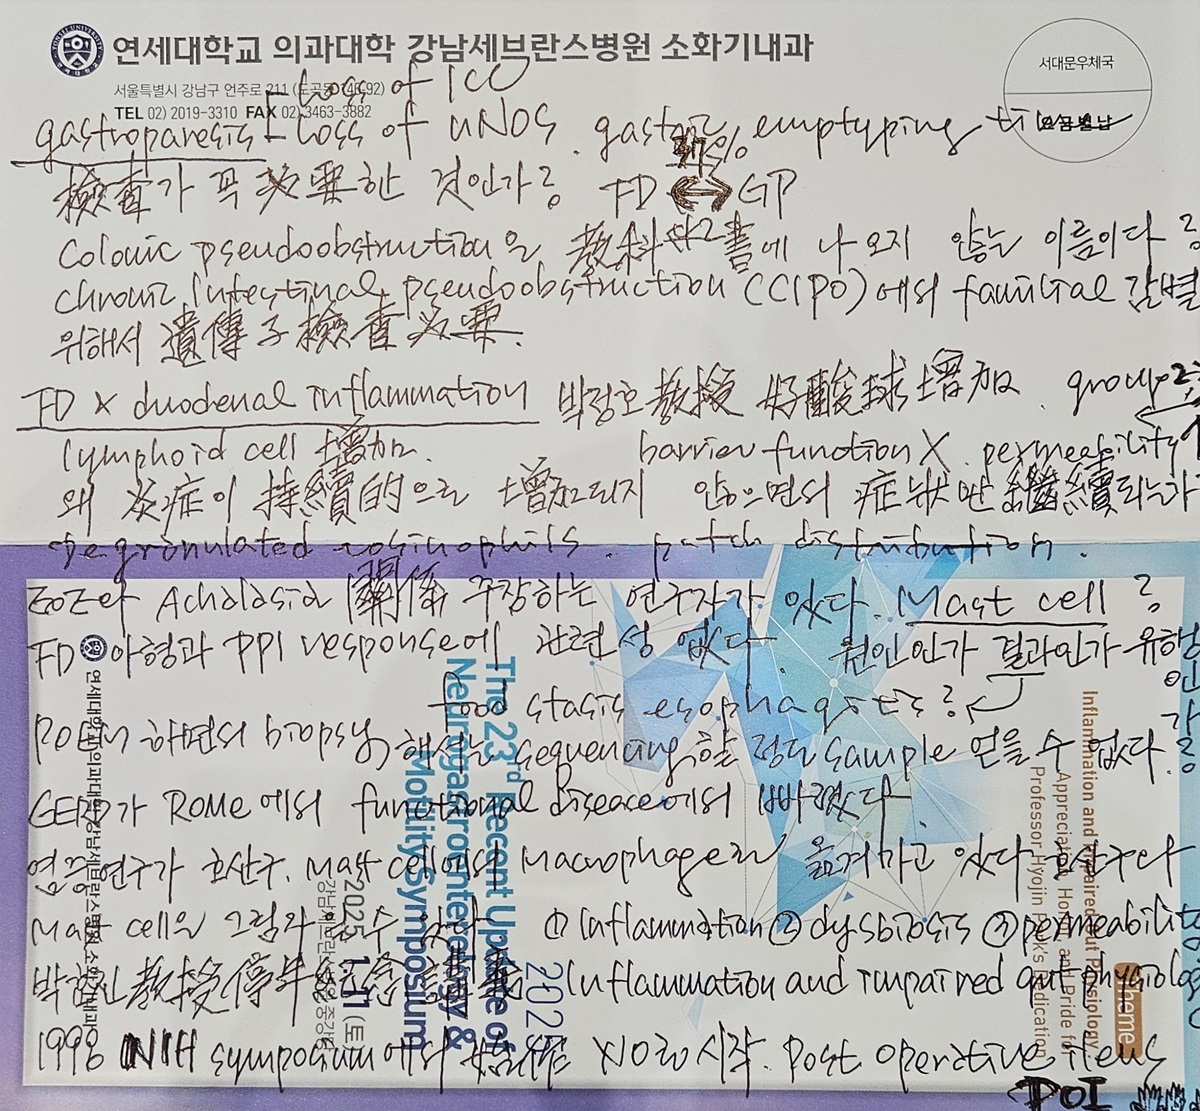 연세대학교 의과대학 강남세브란스병원 소화기내과
서울특별시 강남구 언주로 211 (도곡동 146-92)
TEL 02) 2019-3310 FAX 02) 3463-3882
서대문우체국
요금별납
Loss of ICC
gastroparesis Loss of nNOS. gastric emptyping
37%
檢査가 꼭 必要한 것인가? FD ↔ GP
Colonic pseudoobstruction은 教科書에 나오지 않는 이름이다?
chronic Intestinal pseudoobstruction (CCIPO)에서 familial 감별
위해서 遺傳子檢査必要.
FD x duodenal inflammation 박정호教授 好酸球增加. group2
lymphoid cell 增加. barrier function X permeability↑
왜 炎症이 持續的으로 增加되지 않으면서 症狀만 繼續되는가
degranulated eosinophils. patch distribution.
EoE와 Achalasia 關係 주장하는 연구자가 있다. Mast cell?
FD 아형과 PPI response에 관련성 없다. 원인인가 결과인가 유형인가?
food stasis esophagitis?
POEM 하면서 biopsy 해서 sequencing 할 정도 sample 얻을 수 없다.
GERD가 Rome에서 functional disease에서 빠졌다.
염증연구가 호산구, Mast cell에서 Macrophage로 옮겨가고 있다 호산구다
Mast cell은 그림자 수 있다 ① Inflammation ② dysbiosis ③ permeability
박효진教授停年紀念 Inflammation and impaired gut physiology
1998 NIH symposium에서 시작. Post operative ileus
POI
연세대학교 의과대학 강남세브란스병원 소화기내과
The 23rd Recent Update of
Neurogastroenterology &
Motility Symposium
2025
2025 1.11 (토)
Theme
Inflammation and Impaired Gut Physiology
Appreciation, Honor, and Pride for
Professor Hyojin Park's Dedication